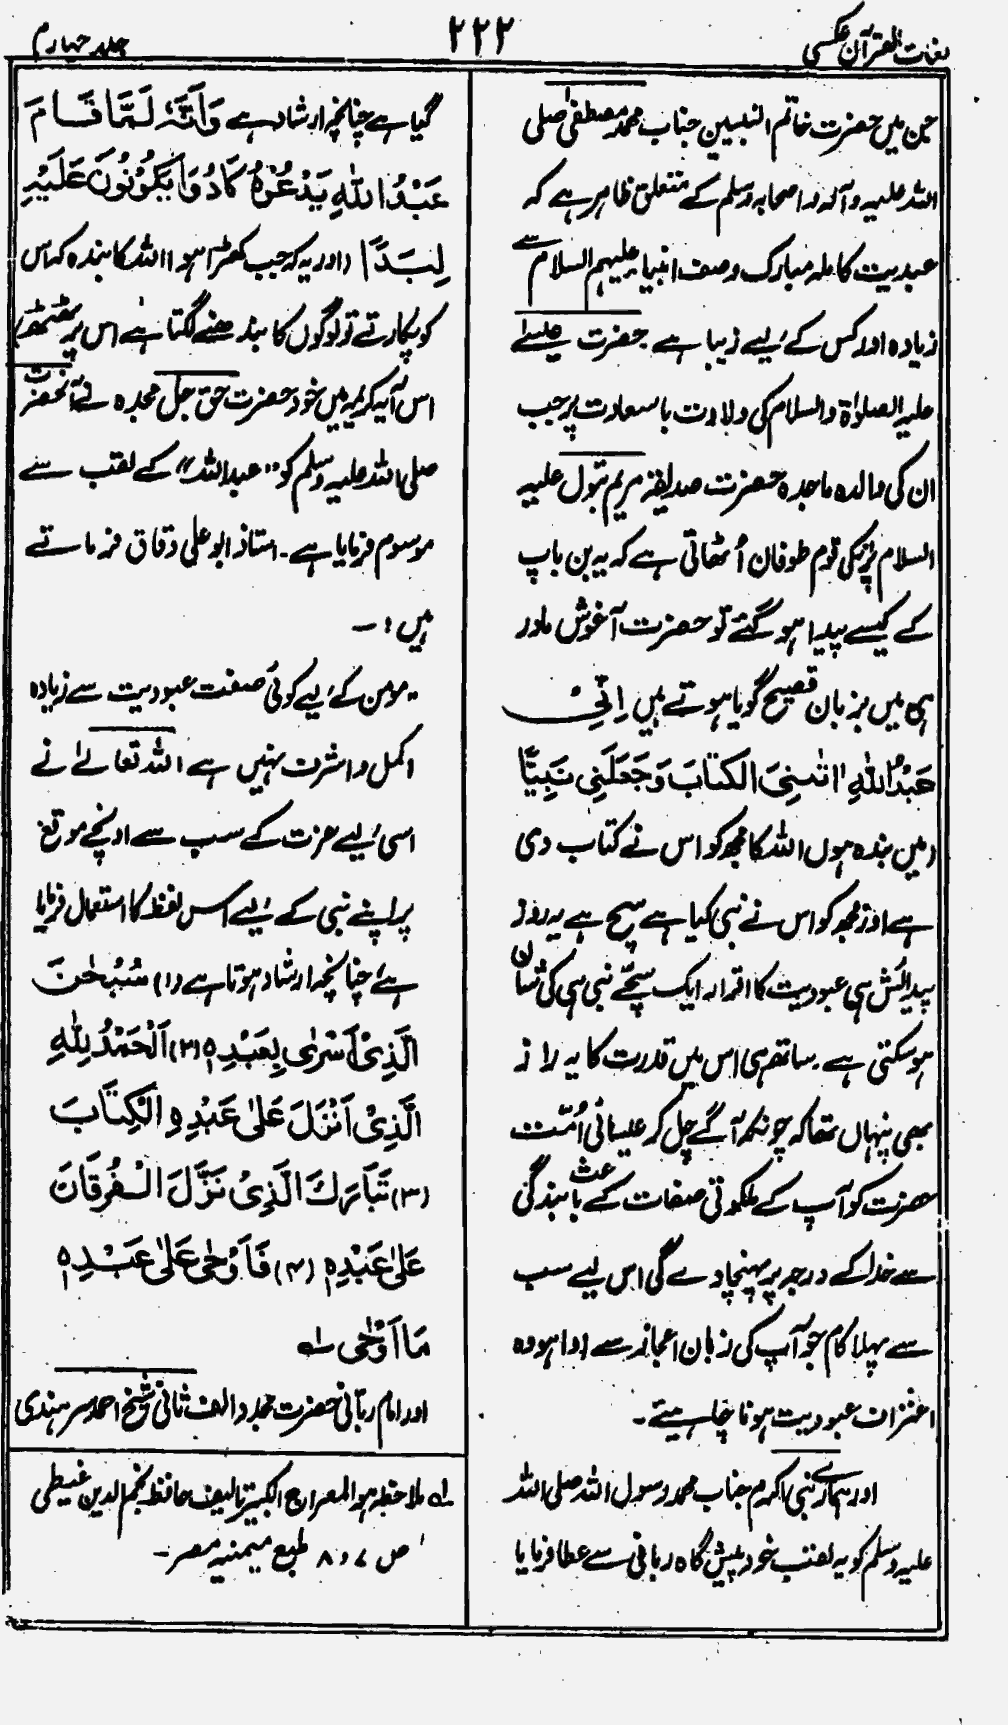 لغات القرآن عکسی
۲۲۲
جلد چہارم
جن میں حضرت خاتم النبیین جناب محمد مصطفیٰ صلی
اللہ علیہ وآلہ واصحابہ وسلم کے متعلق ظاہر ہے کہ
عبدیت کاملہ مبارک وصف انبیا علیہم السلام سے
زیادہ اور کس کے لیے زیبا ہے حضرت عیسےٰ
علیہ الصلوٰۃ والسلام کی ولادت باسعادت پر جب
ان کی والدہ ماجدہ حضرت صدیقہ مریم بتول علیہ
السلام پر کی قوم طوفان اُٹھاتی ہے کہ یہ بن باپ
کے کیسے پیدا ہو گئے تو حضرت آغوش مادر
ہی میں بزبان فصیح گویا ہوتے ہیں اِنِّیْ
عَبْدُ اللّٰهِ اٰتٰنِیَ الْکِتَابَ وَجَعَلَنِی نَبِیًّا
(میں بندہ ہوں اللہ کا مجھ کو اس نے کتاب دی
ہے اور مجھ کو اس نے نبی کیا ہے سچ ہے یہ روز
پیدائش ہی عبودیت کا اقرار ایک سچے نبی ہی کی شان
ہو سکتی ہے۔ ساتھ ہی اس میں قدرت کا یہ راز
بھی پنہاں تھا کہ چونکہ آگے چل کر عیسائی اُمّت
حضرت کو آپ کے ملکوتی صفات کے باعث بندگی
سے خدا کے درجہ پر پہنچا دے گی اس لیے سب
سے پہلا کام جو آپ کی زبان اعجاز سے ادا ہو وہ
اعتراف عبودیت ہونا چاہیئے۔
اور ہمارے نبی اکرم جناب محمد رسول اللہ صلی اللہ
علیہ وسلم کو یہ لقب خود پیش گاہ ربانی سے عطا فرمایا
گیا ہے چنانچہ ارشاد ہے وَاَنَّهٗ لَمَّا قَامَ
عَبْدُ اللّٰهِ یَدْعُوْهُ کَادُوْا یَکُوْنُوْنَ عَلَیْهِ
لِبَدًا (اور یہ کہ جب کھڑا ہوا اللہ کا بندہ کہ اس
کو پکارتے تو لوگوں کا بندھنے لگتا ہے اس پر ٹھٹھ)
اس آیہ کریمہ میں خود حضرت حق جل مجدہ نے آنحضرت
صلی اللہ علیہ وسلم کو "عبداللہ" کے لقب سے
موسوم فرمایا ہے۔ استاذ ابو علی دقاق فرماتے
ہیں :۔
۔مومن کے لیے کوئی صفت عبودیت سے زیادہ
اکمل واشرف نہیں ہے اللہ تعالےٰ نے
اسی لیے عزت کے سب سے اونچے موقع
پر اپنے نبی کے لیے اس لفظ کا استعمال فرمایا
ہے چنانچہ ارشاد ہوتا ہے (۱) سُبْحٰنَ
الَّذِیْ اَسْرٰی بِعَبْدِهٖ (۲) اَلْحَمْدُ لِلّٰهِ
الَّذِیْ اَنْزَلَ عَلیٰ عَبْدِهِ الْکِتَابَ
(۳) تَبَارَكَ الَّذِیْ نَزَّلَ الْفُرْقَانَ
عَلیٰ عَبْدِهٖ (۴) فَاَوْحٰی عَلیٰ عَبْدِهٖ
مَا اَوْحٰی لہ
اور امام ربانی حضرت مجدد الف ثانی شیخ احمد سرہندی
لہ ملاحظہ ہو المعراج الکبیر تالیف حافظ نجم الدین غیطی
ص ۷، ۸ طبع میمنیہ مصر۔